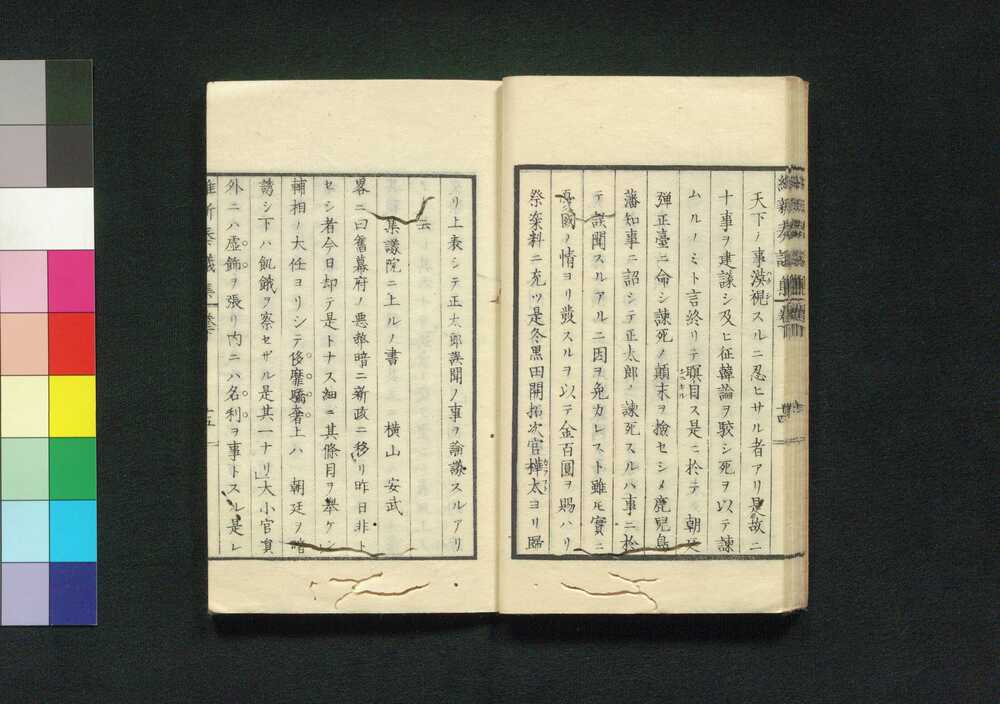 天下ノ事漠視スルニ忍ヒサル者アリ是故ニ
十事ヲ建議シ及ヒ征韓論ヲ駁シ死ヲ以テ諫
ムルノミト言終リテ瞑目ス是ニ於テ朝廷
彈正臺ニ命シ諫死ノ顛末ヲ撿セシメ鹿児島
藩知事ニ詔シテ正太郎ノ諫死スルハ事ニ於
テ誤聞スルアルニ因ヲ免カレスト雖モ實ニ
憂國ノ情ヨリ發スルヲ以テ金百圓ヲ賜ハリ
祭粢料ニ充ツ是冬黒田開拓次官樺太ヨリ歸
來リ上表シテ正太郎誤聞ノ事ヲ論議スルアリ
云
集議院ニ上ルノ書 横山 安武
畧ニ曰舊幕府ノ悪弊暗ニ新政ニ移リ昨日非ト
セシ者今日却テ是トナス細ニ其條目ヲ舉ケン
輔相ノ大任ヨリシテ侈靡驕奢上ハ 朝廷ヲ暗
誘シ下ハ飢餓ヲ察セザル是其一ナリ」大小官員
外ニハ虚飾ヲ張リ内ニハ名利ヲ事トスル是レ